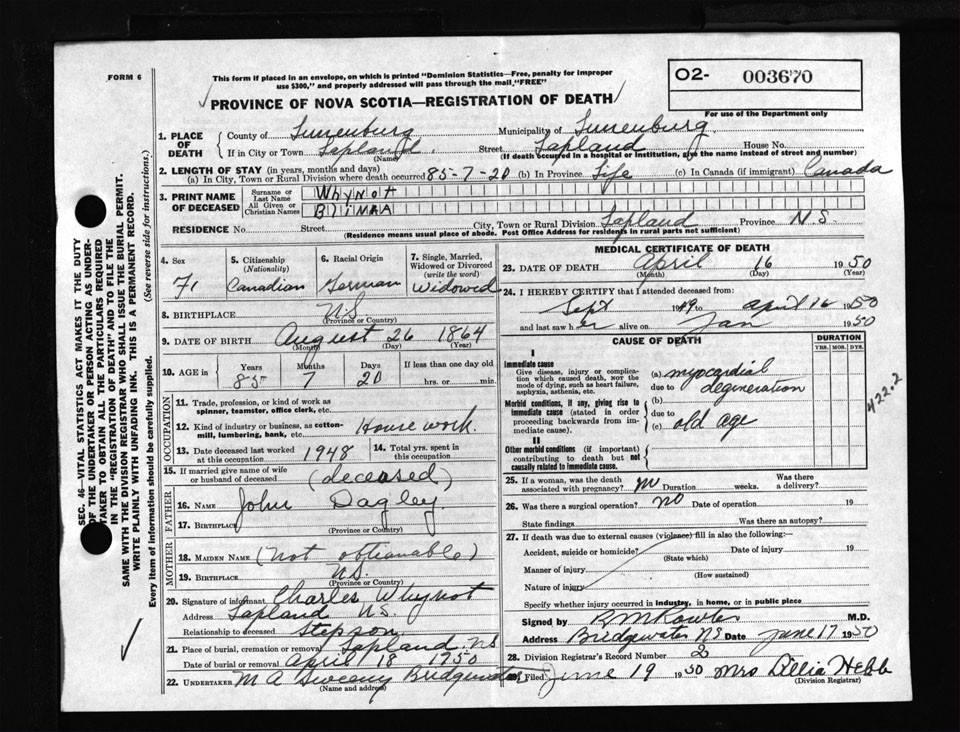 FORM 6
This form if placed in an envelope, on which is printed "Dominion Statistics—Free, penalty for improper
use $300," and properly addressed will pass through the mail, "FREE"
O2- 003670
For use of the Department only
PROVINCE OF NOVA SCOTIA—REGISTRATION OF DEATH
1. PLACE OF DEATH
County of Lunenburg Municipality of Lunenburg
If in City or Town Lapland Street Lapland House No.
(Name) (If death occurred in a hospital or institution, give the name instead of street and number)
2. LENGTH OF STAY (in years, months and days)
(a) In City, Town or Rural Division where death occurred 85-7-20 (b) In Province Life (c) In Canada (if immigrant) Canada
3. PRINT NAME OF DECEASED
Surname or Last Name Whynot
All Given or Christian Names
RESIDENCE No. Street City, Town or Rural Division Lapland Province N.S.
(Residence means usual place of abode. Post Office Address for residents in rural parts not sufficient)
4. Sex
5. Citizenship (Nationality)
6. Racial Origin
7. Single, Married, Widowed or Divorced (write the word)
F Canadian German Widowed
8. BIRTHPLACE N.S.
(Province or Country)
9. DATE OF BIRTH August 26 1864
(Month) (Day) (Year)
10. AGE in Years Months Days If less than one day old
85 7 20 hrs. or min.
OCCUPATION
11. Trade, profession, or kind of work as
spinner, teamster, office clerk, etc.
12. Kind of industry or business, as cotton-
mill, lumbering, bank, etc. House work.
13. Date deceased last worked at this occupation 1948
14. Total yrs. spent in this occupation
15. If married give name of wife
or husband of deceased (deceased)
FATHER
16. Name John Dagley
17. Birthplace
(Province or Country)
MOTHER
18. MAIDEN NAME (Not obtionable)
19. BIRTHPLACE N.S.
(Province or Country)
20. Signature of informant Charles Whynot
Address Lapland N.S.
Relationship to deceased Stepson
21. Place of burial, cremation or removal Lapland N.S.
Date of burial or removal April 18 1950
22. UNDERTAKER M A Sweeny Bridgewater
(Name and address)
MEDICAL CERTIFICATE OF DEATH
23. DATE OF DEATH April 16 1950
(Month) (Day) (Year)
24. I HEREBY CERTIFY that I attended deceased from:
Sept 1949 to April 16 1950
and last saw her alive on Jan 1950
CAUSE OF DEATH
DURATION
YRS. MOS. DYS.
I
Immediate cause
Give disease, injury or complica-
tion which caused death, NOT the
mode of dying, such as heart failure,
asphyxia, asthenia, etc.
(a) myocardial
due to degeneration
Morbid conditions, if any, giving rise to
immediate cause (stated in order
proceeding backwards from im-
mediate cause).
(b)
due to
(c) old age
422.2
II
Other morbid conditions (if important)
contributing to death but not
causally related to immediate cause.
25. If a woman, was the death
associated with pregnancy? no Duration weeks. Was there a delivery?
26. Was there a surgical operation? no Date of operation 19
State findings Was there an autopsy?
27. If death was due to external causes (violence) fill in also the following:—
Accident, suicide or homicide? Date of injury 19
(State which)
Manner of injury
(How sustained)
Nature of injury
Specify whether injury occurred in industry, in home, or in public place
Signed by M.D.
Address Bridgewater NS Date June 17 1950
28. Division Registrar's Record Number 2
Filed June 19 1950 Mrs Lillia Hebb
(Division Registrar)
SEC. 46—VITAL STATISTICS ACT MAKES IT THE DUTY
OF THE UNDERTAKER OR PERSON ACTING AS UNDER-
TAKER TO OBTAIN ALL THE PARTICULARS REQUIRED
IN THE "REGISTRATION OF DEATH" AND TO FILE THE
SAME WITH THE DIVISION REGISTRAR WHO SHALL ISSUE THE BURIAL PERMIT.
WRITE PLAINLY WITH UNFADING INK. THIS IS A PERMANENT RECORD.
Every item of information should be carefully supplied. (See reverse side for instructions.)